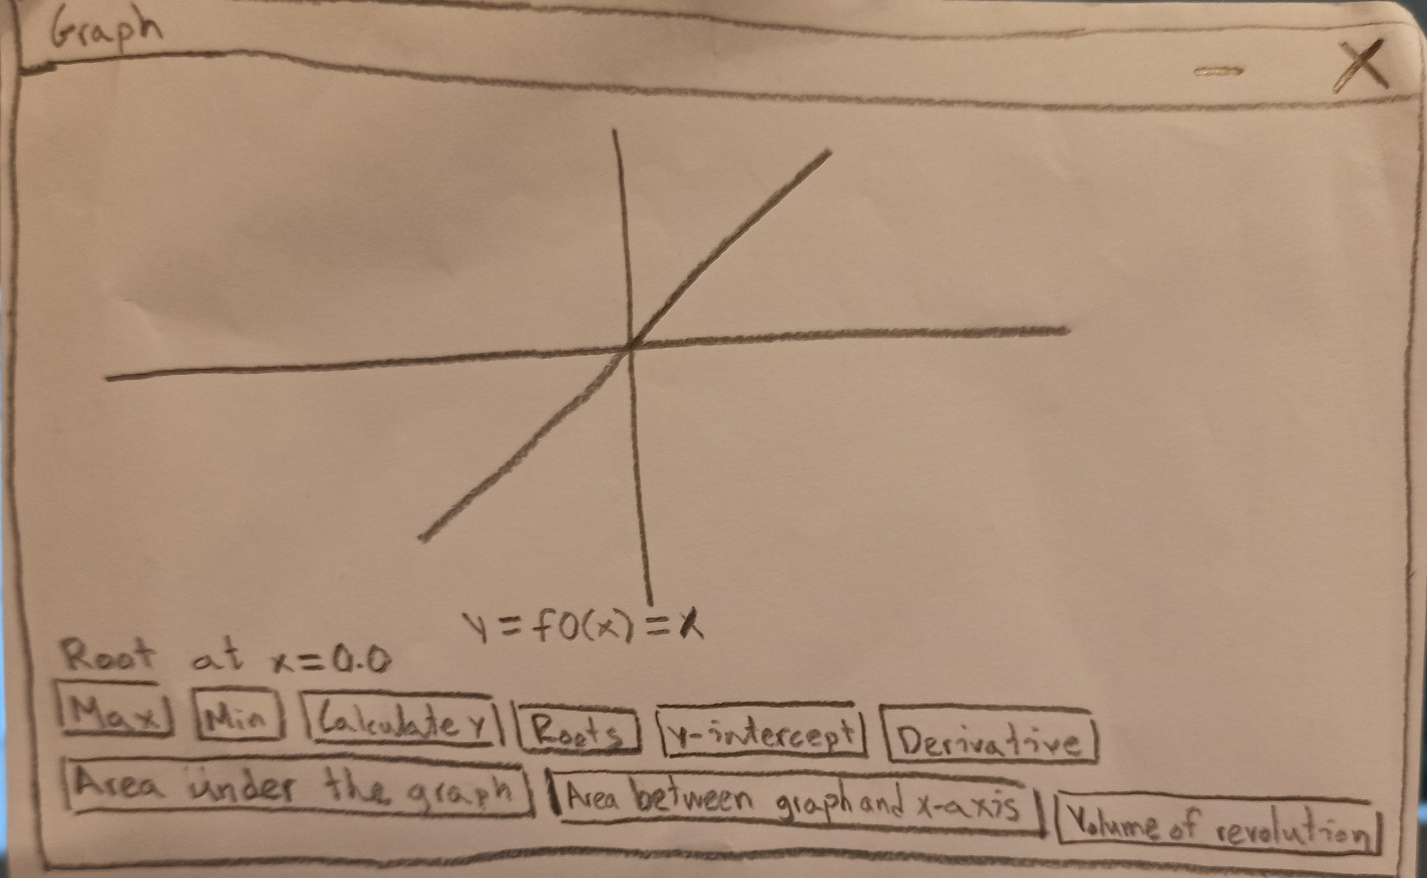 Graph
y=f0(x)=x
Root at x=0.0
Max Min Calculate y Roots y-intercept Derivative
Area under the graph Area between graph and x-axis Volume of revolution